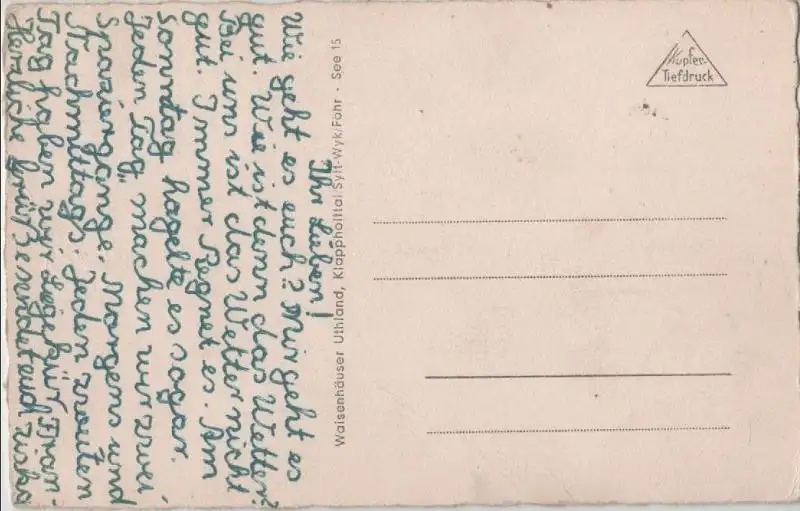 Ihr Lieben!
Wie geht es euch? Mir geht es
gut. Wie ist denn das Wetter?
Bei uns ist das Wetter nicht
gut. Immer Regnet es. Am
Sonntag hagelte es sogar.
Jeden Tag machen wir zwei
Spaziergänge. Morgens und
Nachmittags. Jeden zweiten
Tag haben wir Liegekur
Herzliche Grüße sendet euch
Waisenhäuser Uthland, Klappholttal/Sylt-Wyk/Föhr - See 15
Kupfer-
Tiefdruck